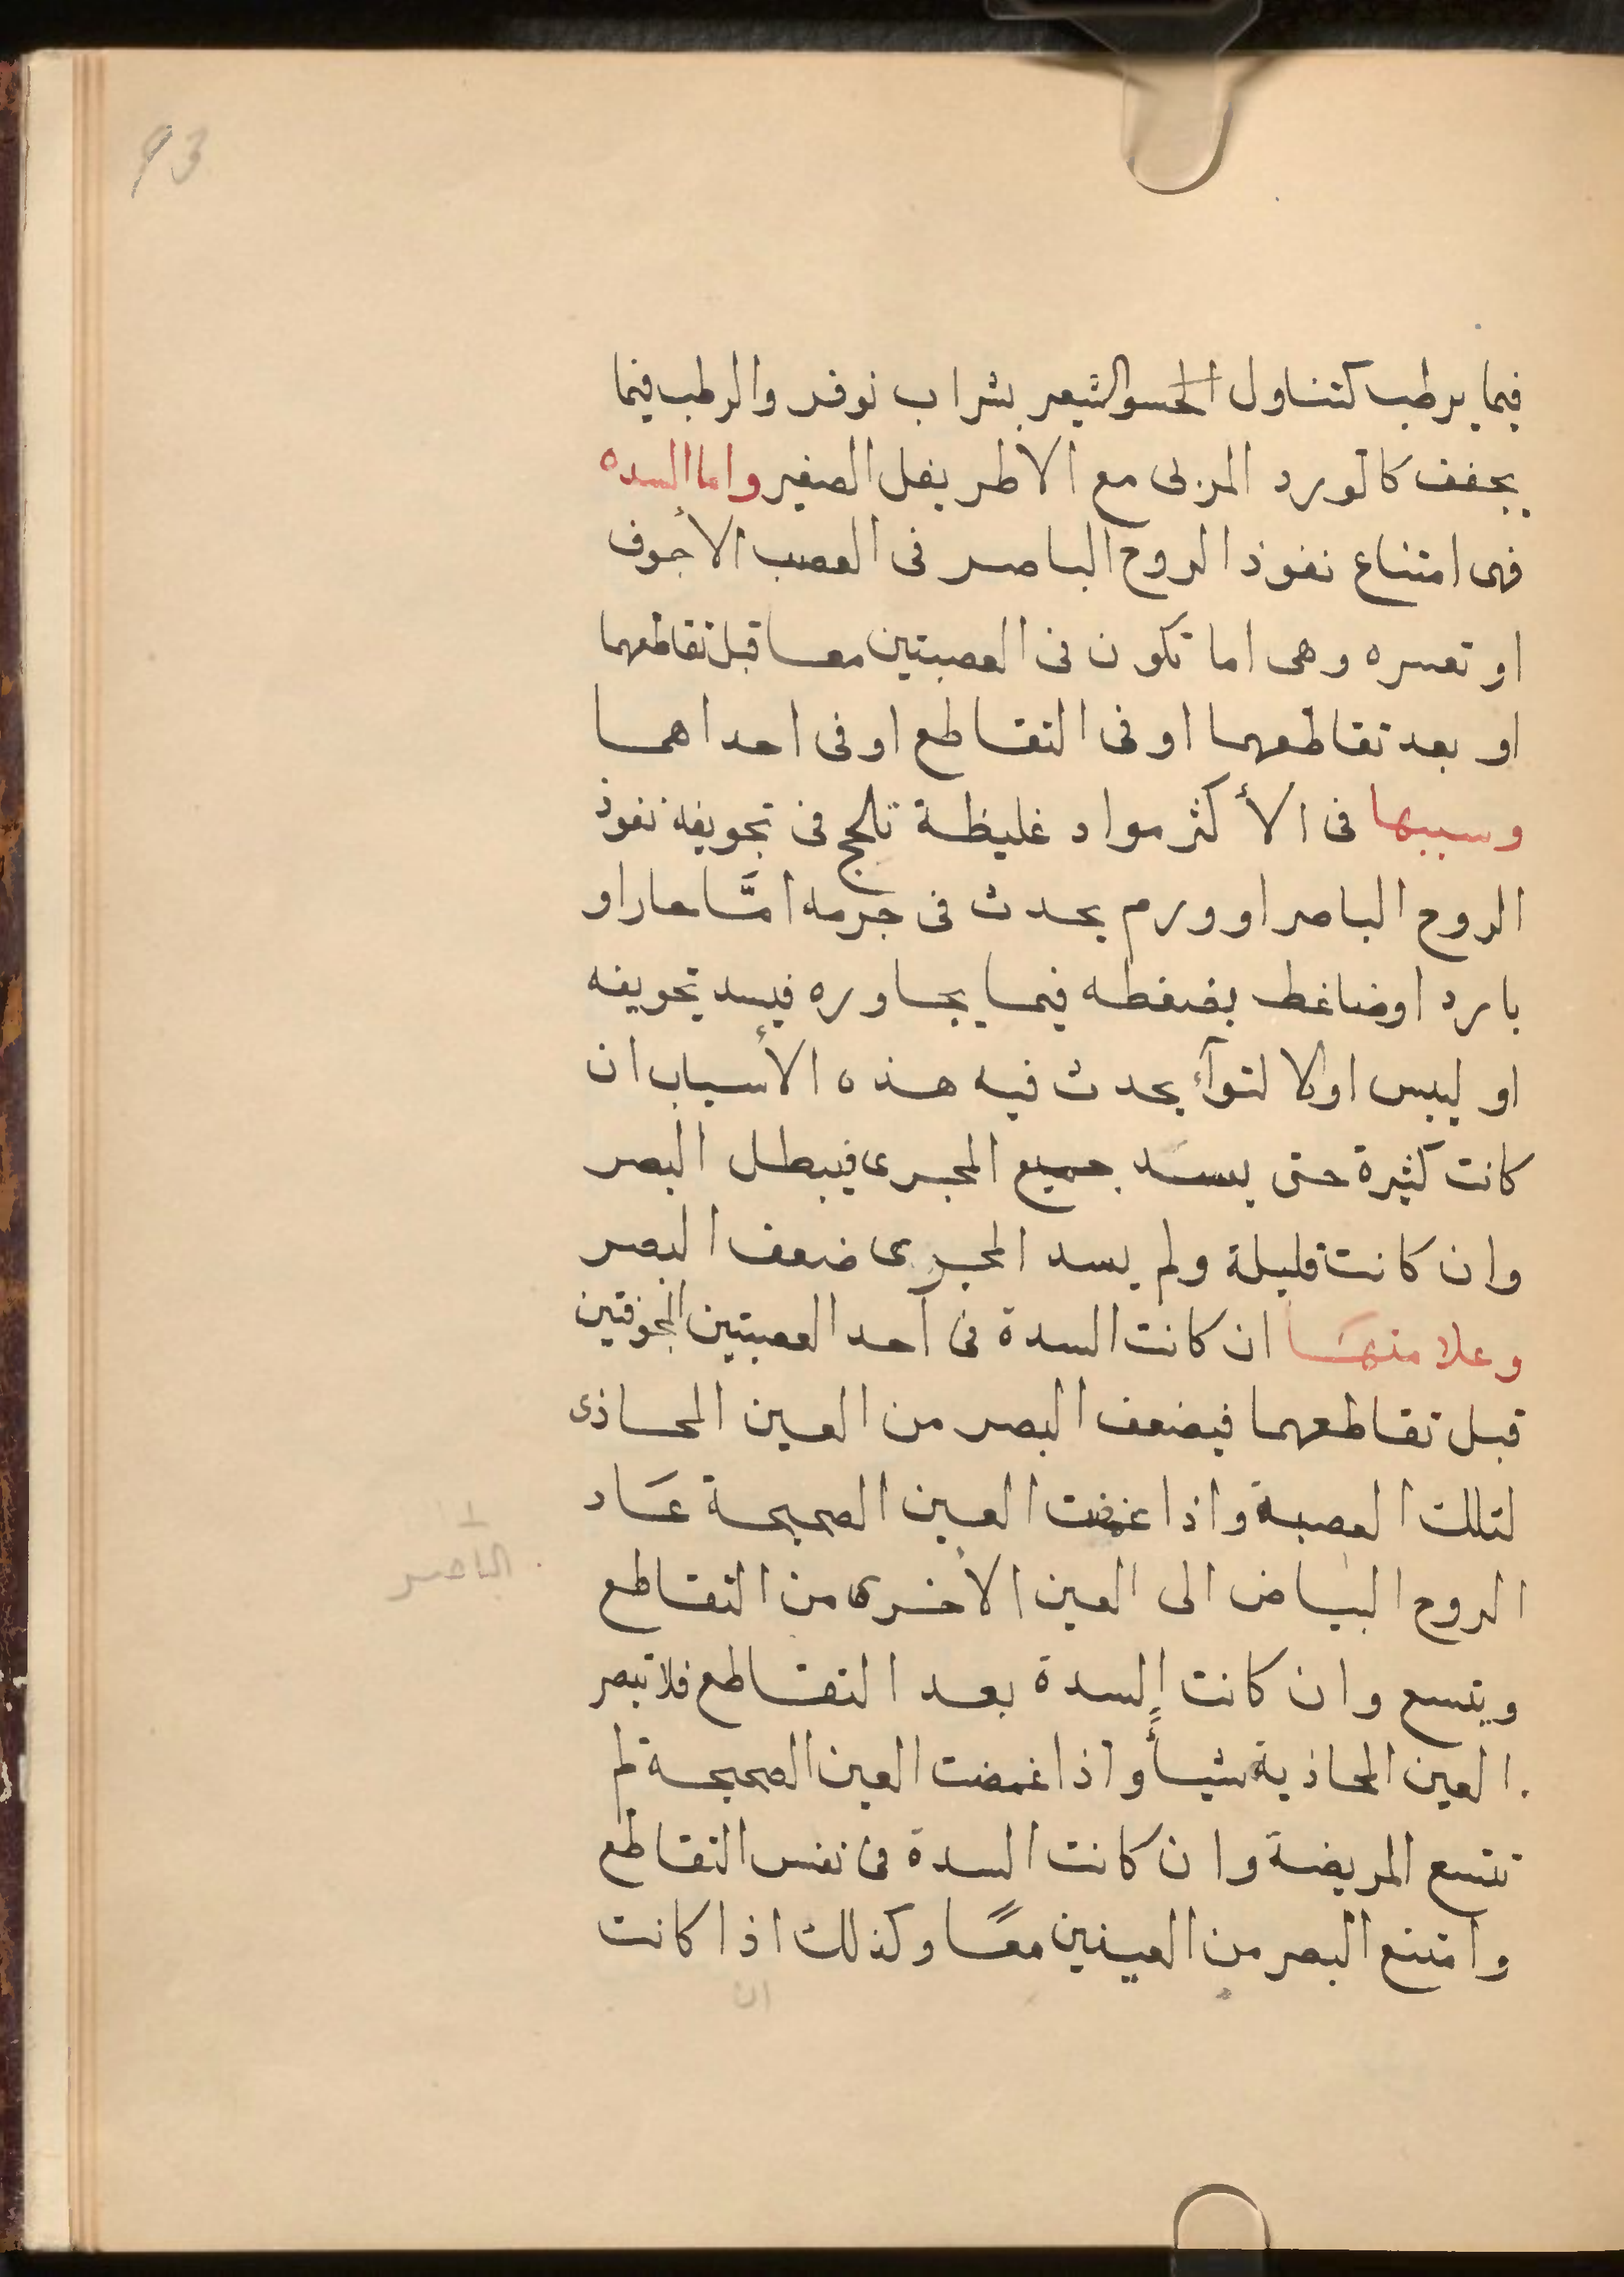 93
فيما يرطب كتناول الحسو الشعير بشراب نوفر والرطب فيما
يجفف كالورد المربى مع الاطريفل الصغير واما السده
فهى امتناع نفوذ الروح الباصر فى العصب الأجوف
او تعسره وهى اما تكون فى العصبتين معا قبل تقاطعهما
او بعد تقاطعهما او فى التقاطع او فى احداهما
وسببها فى الأكثر مواد غليظة تلحج فى تجويفه نفوذ
الروح الباصر او ورم يحدث فى جرمه امَّا حار او
بارد او ضاغط يضغطه فيما يجاوره فيسد تجويفه
او ليبس او لالتوآء يحدث فيه هذه الأسباب ان
كانت كثيرة حتى يسد جميع المجرى فيبطل البصر
وان كانت قليلة ولم يسد المجرى ضعف البصر
وعلامتها ان كانت السدة فى احد العصبتين المجوفتين
قبل تقاطعهما فيضعف البصر من العين المحاذى
لتلك العصبة واذا غمضت العين الصحيحة عاد
الروح البياض الى العين الأخرى من التقاطع
الباصر
ويتسع وان كانت السدة بعد التقاطع فلا تبصر
العين المحاذية شيأً واذا غمضت العين الصحيحة لم
تتسع المريضة وان كانت السدة فى نفس التقاطع
وامتنع البصر من العينين معًا وكذلك اذا كانت
ان